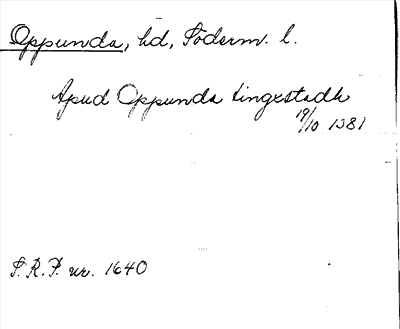 Oppunda, hd, Söderm. l.
Apud Oppunda tingxstadh
19/10 1381
S.R.P. nr. 1640